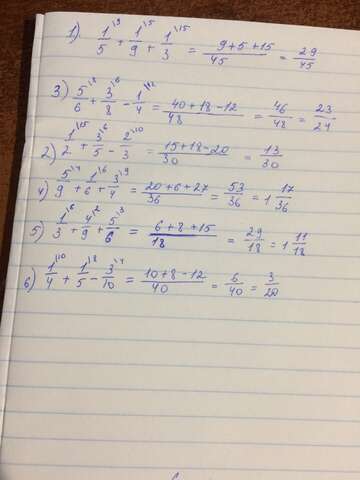 1) 1/5 \9 + 1/9 \5 + 1/3 \15 = (9+5+15)/45 = 29/45
3) 5/6 \8 + 3/8 \6 - 1/4 \12 = (40+18-12)/48 = 46/48 = 23/24
2) 1/2 \15 + 3/5 \6 - 2/3 \10 = (15+18-20)/30 = 13/30
4) 5/9 \4 + 1/6 \6 + 3/4 \9 = (20+6+27)/36 = 53/36 = 1 17/36
5) 1/3 \6 + 4/9 \2 + 5/6 \3 = (6+8+15)/18 = 29/18 = 1 11/18
6) 1/4 \10 + 1/5 \8 - 3/10 \4 = (10+8-12)/40 = 6/40 = 3/20